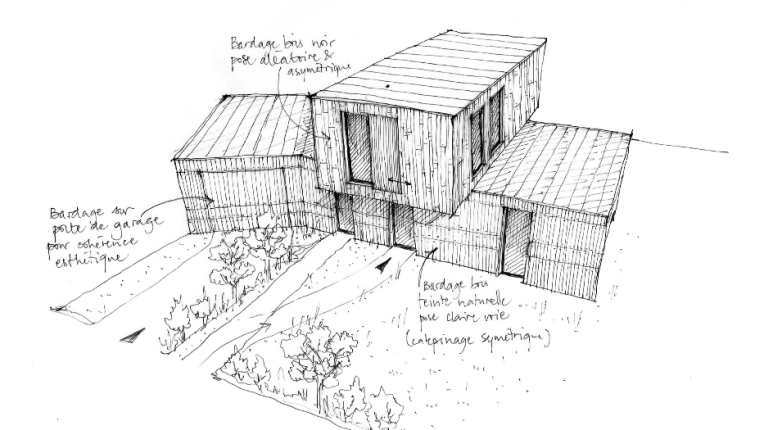 Bardage bois noir
pose aléatoire &
asymétrique
Bardage sur
porte de garage
pour cohérence
esthétique
Bardage bois
teinte naturelle
pose claire voie
(calepinage symétrique)